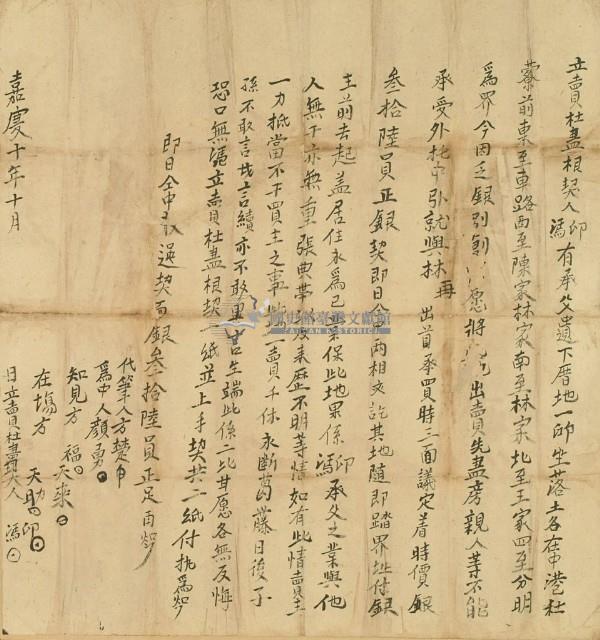 立賣杜盡根契人 馮 印 有承父遺下厝地一所坐落土名在中港杜
藔前東至車路西至陳家林家南至林家北至王家四至分明
為界今因乏銀別創 愿將 出賣先盡房親人等不能
承受外托中引就與林 再 出首承買時三面議定着時價銀
叁拾陸員正銀契即日仝中兩相交訖其地隨即踏界址付銀
主前去起盖居住永為己業保此地累係 馮 印 承父之業與他
人無干亦無重張典帶 及來歷不明等情如有此情賣主
一力抵當不干買主之事 一賣千休永斷葛藤日後子
孫不敢言找言續亦不敢 言生端此係二比甘愿各無反悔
恐口無憑立賣杜盡根契一紙並上手契共二紙付執為炤
即日仝中收過契面銀叁拾陸員正足再炤
代筆人方楚
為中人顏勇
知見方 福 天來
在塲方 天助 印
嘉慶十年十月 日立賣杜盡契人 馮
國史館臺灣文獻館
TAIWAN HISTORICA